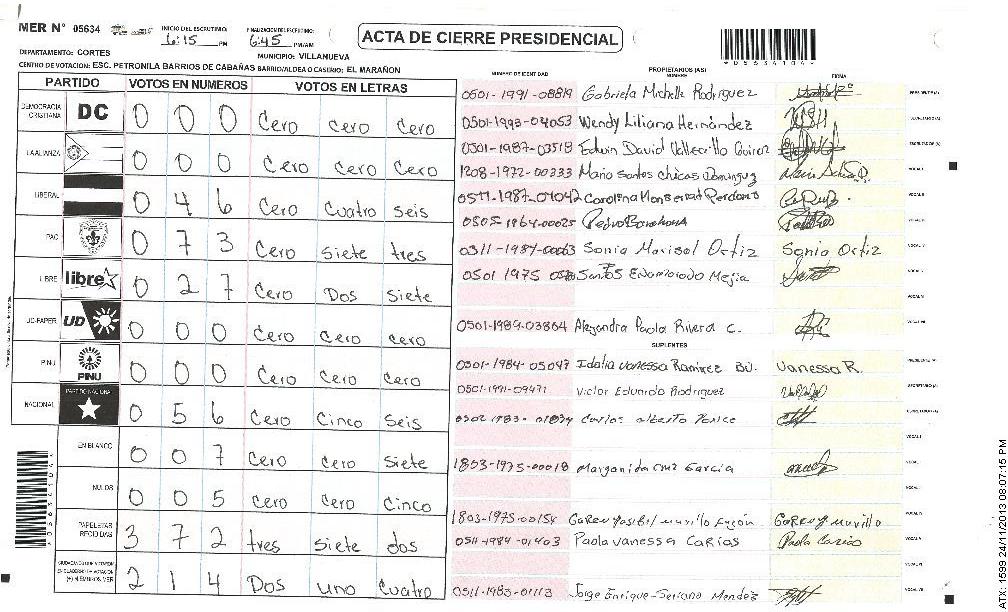 MER N° 05634
INICIO DEL ESCRUTINIO: 6:15 PM
FINALIZACION DEL ESCRUTINIO: 6:45 PM/AM
ACTA DE CIERRE PRESIDENCIAL
DEPARTAMENTO: CORTES
MUNICIPIO: VILLANUEVA
CENTRO DE VOTACION: ESC. PETRONILA BARRIOS DE CABAÑAS BARRIO/ALDEA O CASERIO: EL MARAÑON
PARTIDO VOTOS EN NUMEROS VOTOS EN LETRAS
DEMOCRACIA CRISTIANA DC 0 0 0 Cero Cero Cero
LA ALIANZA 0 0 0 Cero Cero Cero
LIBERAL 0 4 6 Cero Cuatro Seis
PAC 0 7 3 Cero Siete tres
LIBRE libre 0 2 7 Cero Dos Siete
UD-FAPER UD 0 0 0 Cero Cero cero
PINU PINU 0 0 0 Cero Cero Cero
NACIONAL PARTIDO NACIONAL 0 5 6 Cero Cinco Seis
EN BLANCO 0 0 7 Cero Cero Siete
NULOS 0 0 5 Cero Cero Cinco
PAPELETAS RECIBIDAS 3 7 2 tres siete dos
(+) MIEMBROS MER 2 1 4 Dos uno Cuatro
NUMERO DE IDENTIDAD PROPIETARIOS (AS) NOMBRE FIRMA
0501-1991-08819 Gabriela Michelle Rodriguez
0501-1993-04053 Wendy Liliana Hernández
0501-1987-03518 Edwin David
1208-1972-00333 Mario Santos Chicas Dominguez
0511-1987-01042 Carolina Monserrat Perdomo
0505-1964-00025 Pedro Barahona
0311-1984-00063 Sonia Marisol Ortiz Sonia Ortiz
0501 1975 Santos Mejia
0501-1989-03864 Alejandra Paola Rivera C.
SUPLENTES
0501-1984-05047 Idalia Vanessa Ramirez Vanessa R.
0501-1991-09471 Victor Eduardo Rodriguez
0502-1983-01834 Carlos Alberto Ponce
1803-1975-00018 Margarida Cruz Garcia
1803-1975-00154 Murillo
0511-1984-01403 Paola Vanessa Carias Paola Carias
0511-1983-01113 Jorge Enrique Soriano Mendez
TX: 1599 24/11/2013 08:07:15 PM